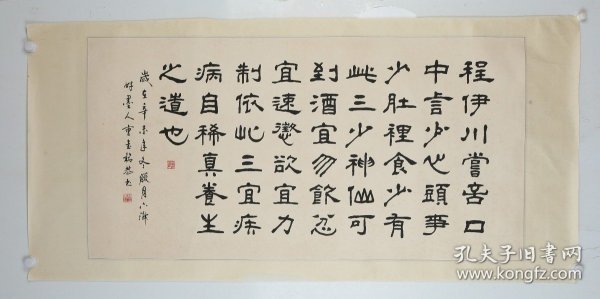 程伊川嘗言口
中言少心頭事
少肚裡食少有
此三少神仙可
到酒宜勿飲忿
宜速懲欲宜力
制依此三宜疾
病自稀真養生
之道也
歲在辛未年冬月六
墨人書
孔夫子旧书网
www.kongfz.com